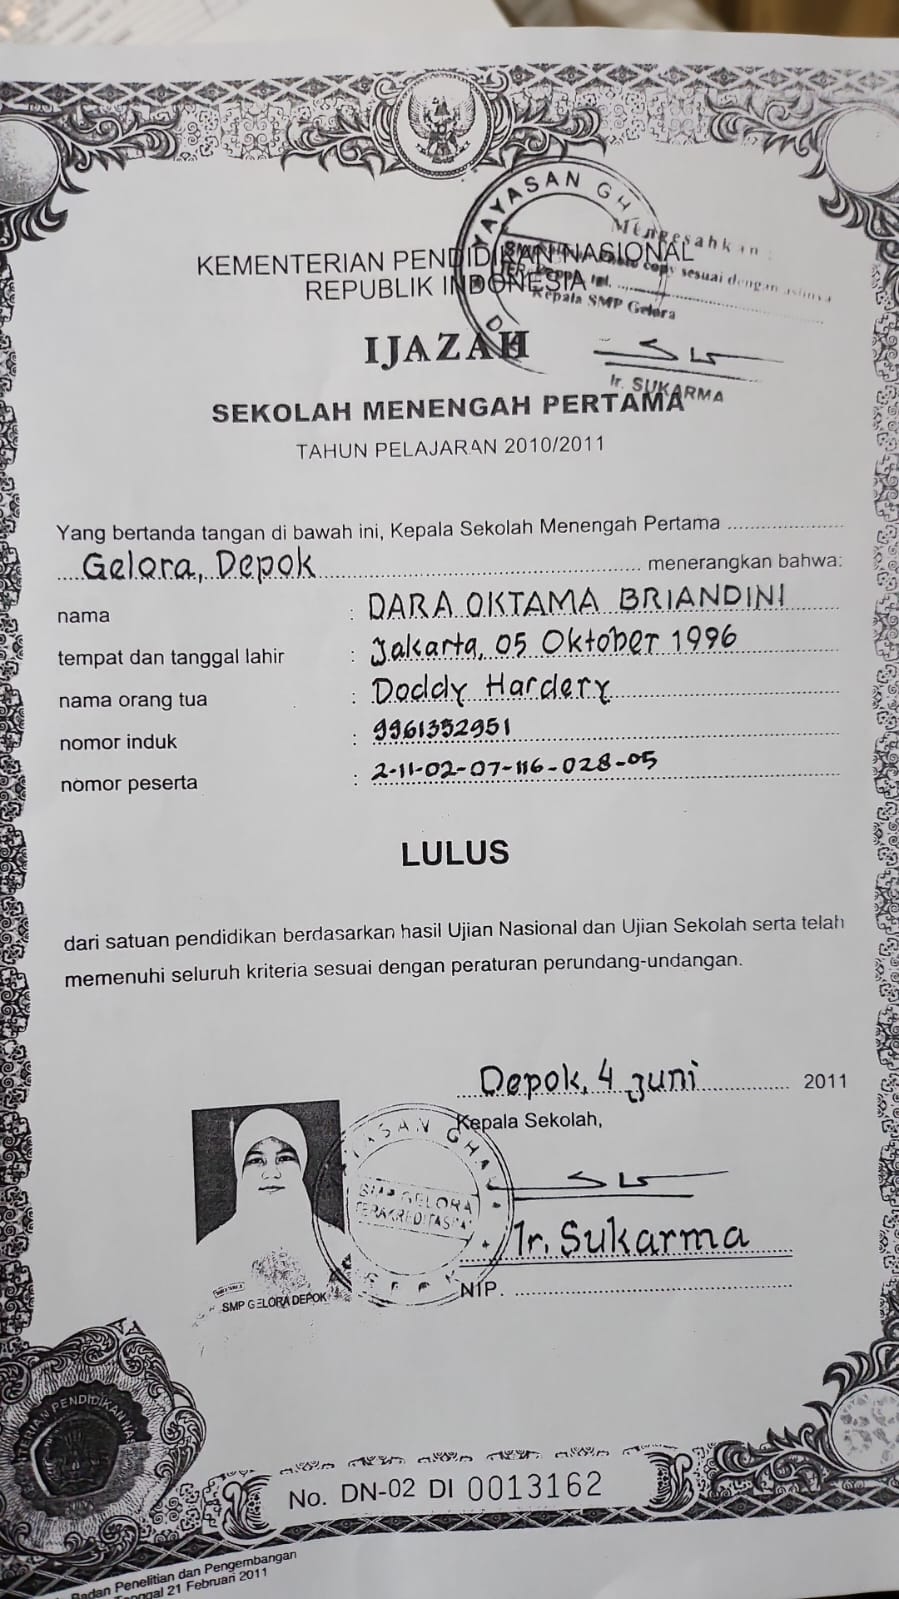 YAYASAN GH
Mengesahkan :
copy sesuai dengan aslinya
Kepala SMP Gelora
Ir. SUKARMA
KEMENTERIAN PENDIDIKAN NASIONAL
REPUBLIK INDONESIA
IJAZAH
SEKOLAH MENENGAH PERTAMA
TAHUN PELAJARAN 2010/2011
Yang bertanda tangan di bawah ini, Kepala Sekolah Menengah Pertama ....................
Gelora, Depok menerangkan bahwa:
nama : DARA OKTAMA BRIANDINI
tempat dan tanggal lahir : Jakarta, 05 Oktober 1996
nama orang tua : Doddy Hardery
nomor induk : 9961352951
nomor peserta : 2-11-02-07-116-028-05
LULUS
dari satuan pendidikan berdasarkan hasil Ujian Nasional dan Ujian Sekolah serta telah
memenuhi seluruh kriteria sesuai dengan peraturan perundang-undangan.
Depok, 4 Juni 2011
Kepala Sekolah,
YASAN GHA
SMP GELORA
TERAKREDITASI
Ir. Sukarma
NIP. ....................
SMP GELORA DEPOK
No. DN-02 DI 0013162
Badan Penelitian dan Pengembangan
Tanggal 21 Februari 2011